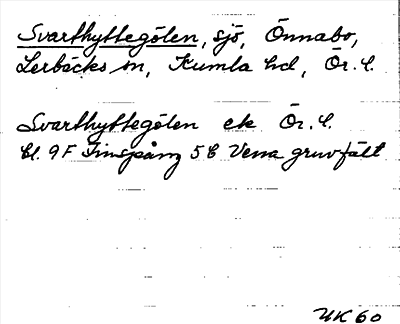 Svarthyttegölen, sjö, Önnabo,
Lerbäcks sn, Kumla hd, Ör. l.
Svarthyttegölen ek Ör. l.
bl. 9F Finspång 5b Vena gruvfält
UK 60